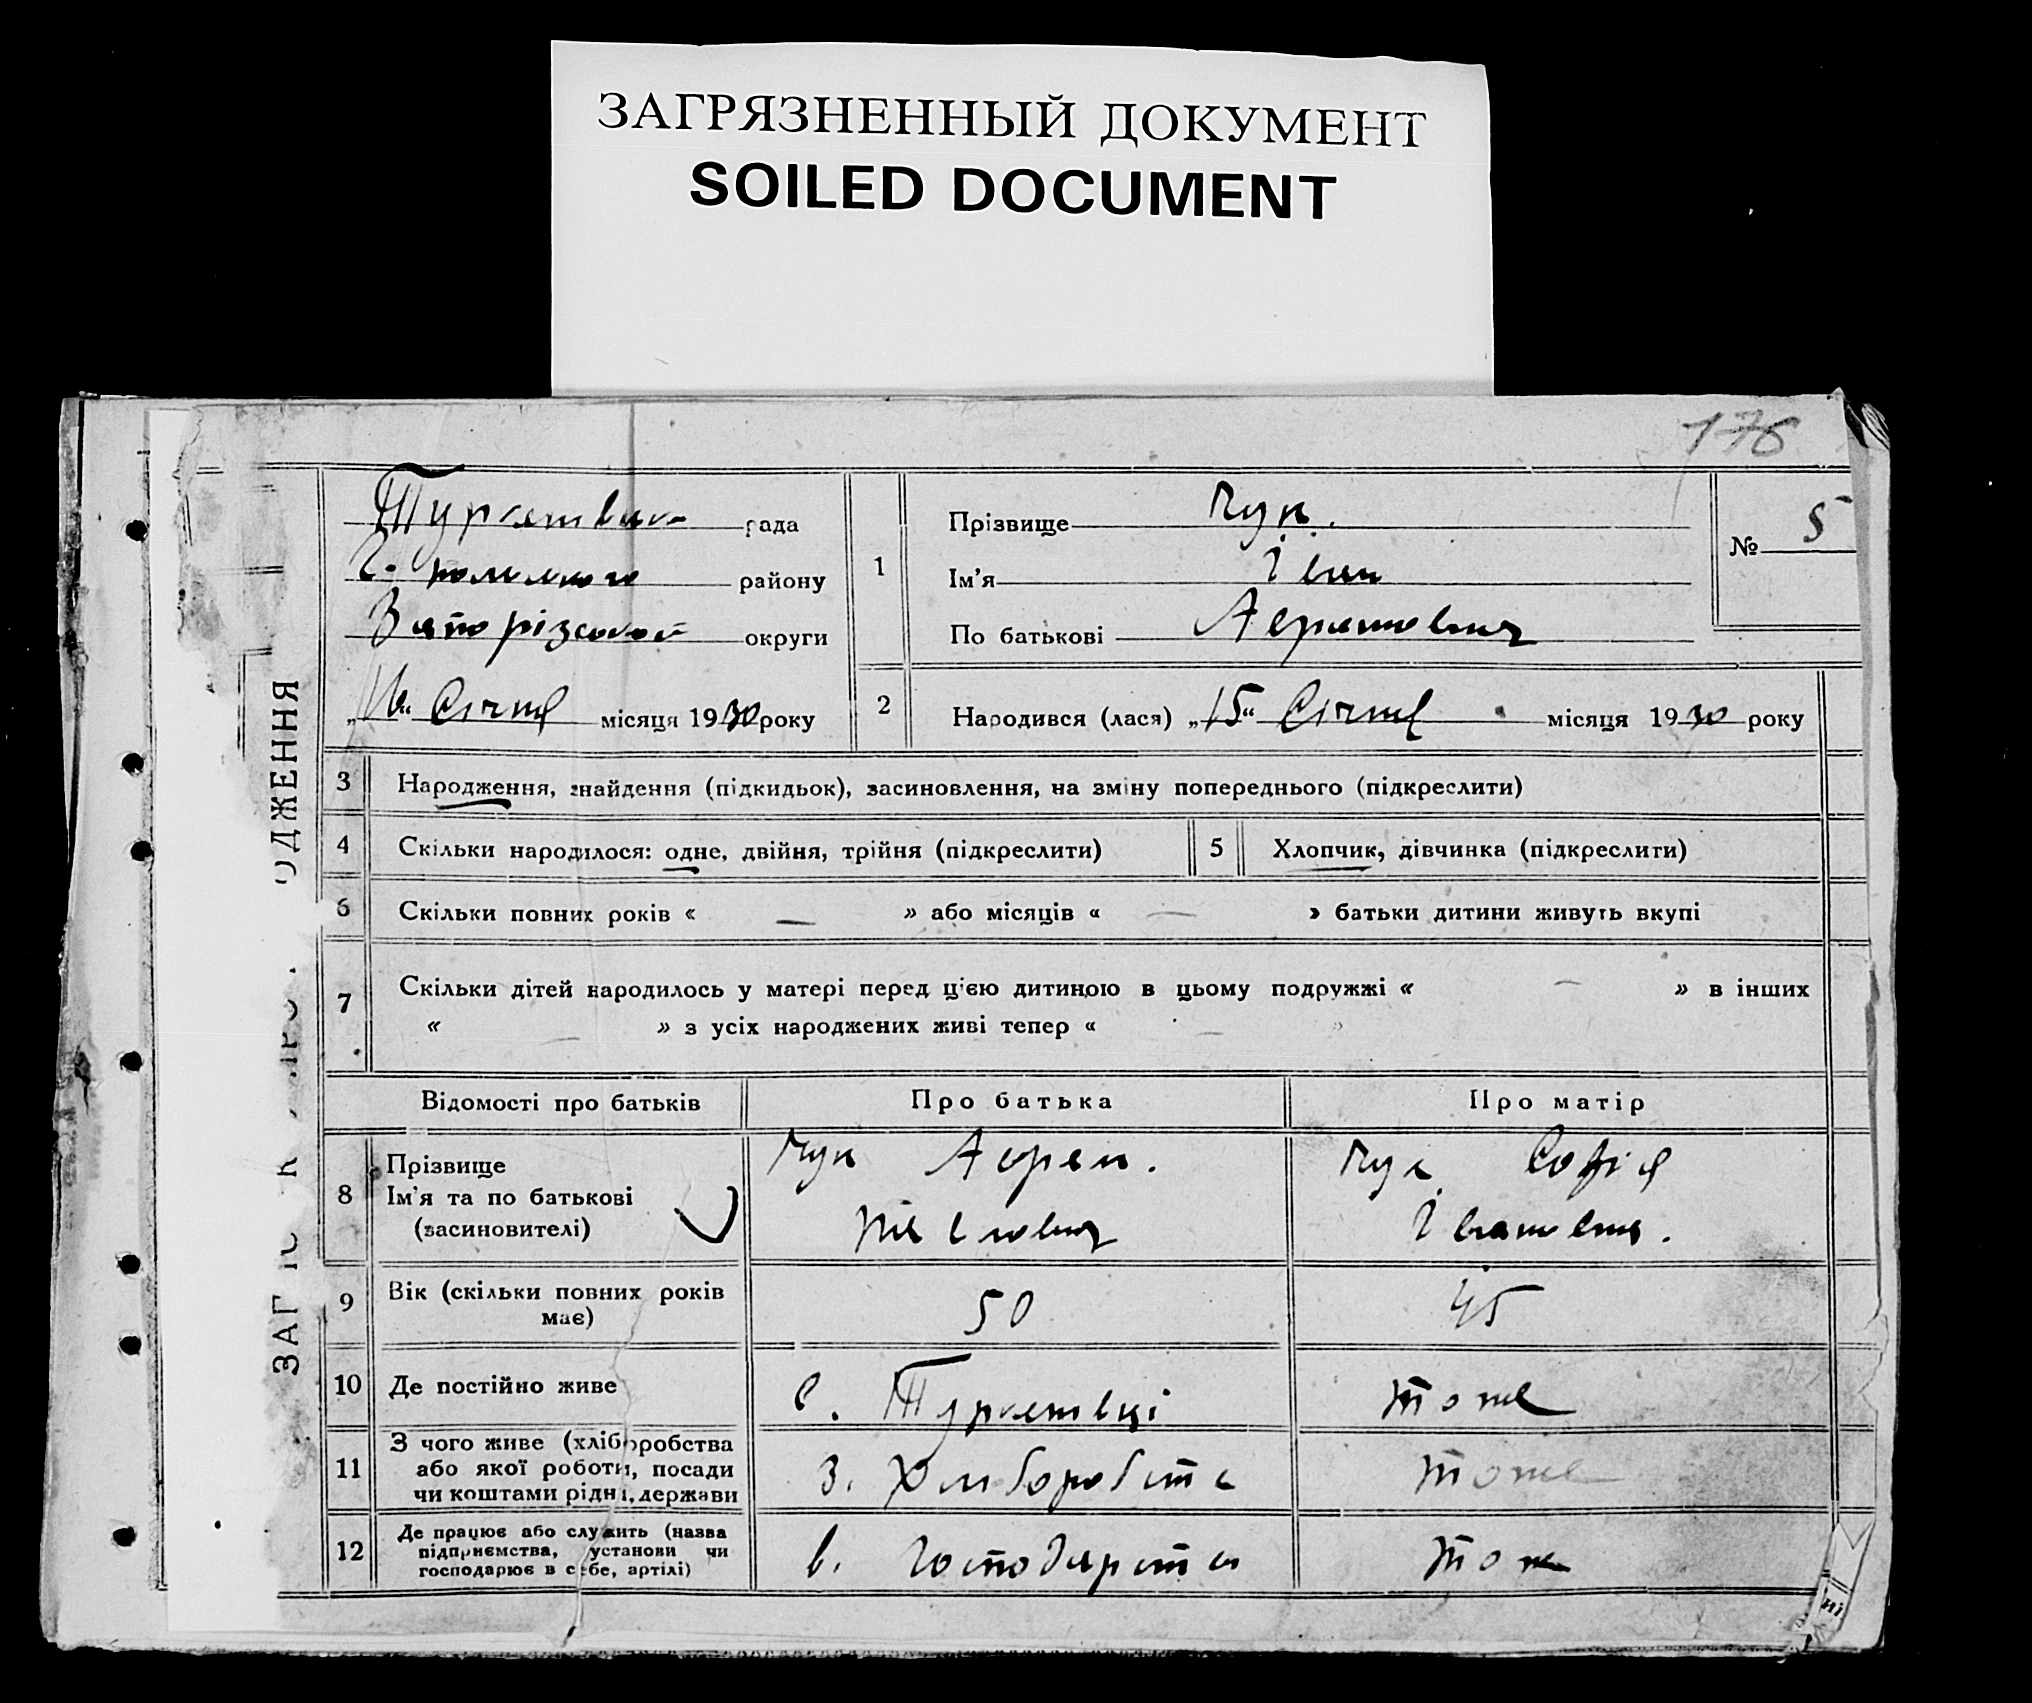 ЗАГРЯЗНЕННЫЙ ДОКУМЕНТ
SOILED DOCUMENT
176
рада
району
Запорізької округи
„16“ Січня місяця 1930 року
1
Прізвище Чук.
Ім'я Іван
По батькові
№ 5
2
Народився (лася) „15“ Січня місяця 1930 року
3 Народження, знайдення (підкидьок), засиновлення, на зміну попереднього (підкреслити)
4 Скільки народилося: одне, двійня, трійня (підкреслити)
5 Хлопчик, дівчинка (підкреслити)
6 Скільки повних років « — » або місяців « — » батьки дитини живуть вкупі
7 Скільки дітей народилось у матері перед цією дитиною в цьому подружжі « — » в інших
« — » з усіх народжених живі тепер « — »
Відомості про батьків
Про батька
Про матір
8 Прізвище
Ім'я та по батькові
(засиновителі)
Чук
Чук Софія
Івановна.
9 Вік (скільки повних років
має)
50
45
10 Де постійно живе
с.
тоже
11 З чого живе (хліборобства
або якої роботи, посади
чи коштами рідні, держави
з. Хліборобства
тоже
12 Де працює або служить (назва
підприємства, установи чи
господарює в себе, артілі)
в. господарстві
тоже